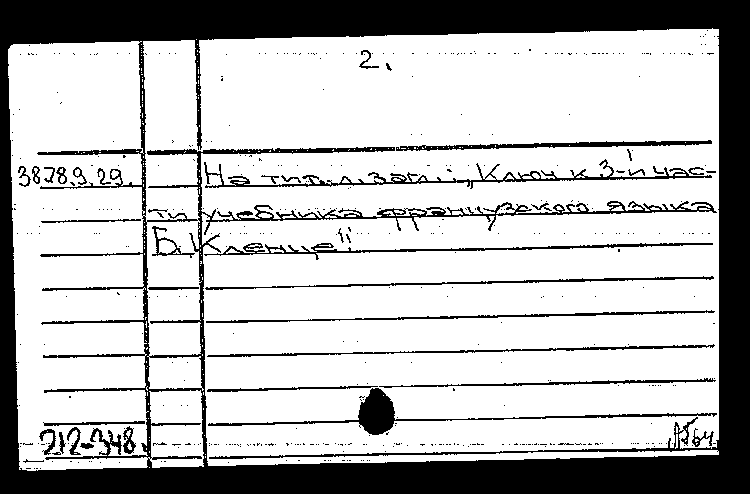 2.
38.78.9.29. На тит. л. загл.: „Ключ к 3-й час-
ти учебника французского языка
Б. Кленце"
212-348.